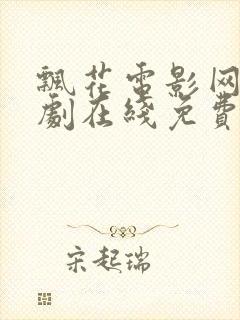 飄花電影网
劇在綫免費
宋起瑞